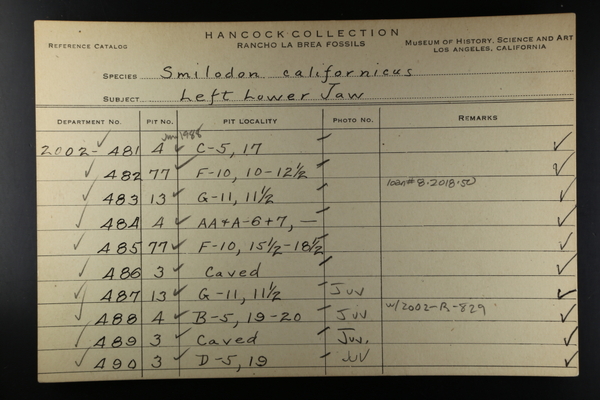 HANCOCK COLLECTION
REFERENCE CATALOG RANCHO LA BREA FOSSILS MUSEUM OF HISTORY, SCIENCE AND ART
LOS ANGELES, CALIFORNIA
SPECIES Smilodon californicus
SUBJECT Left Lower Jaw
DEPARTMENT NO. PIT NO. PIT LOCALITY PHOTO NO. REMARKS
1988
2002-✓481 4 ✓ C-5, 17 ✓
✓ 482 77 ✓ F-10, 10-12½ ✓
loan# 8.2018.50
✓ 483 13 ✓ G-11, 11½ ✓
✓ 484 4 ✓ AA+A-6+7, — ✓
✓ 485 77 ✓ F-10, 15½-18½ ✓
✓ 486 3 ✓ Caved ✓
✓ 487 13 ✓ G-11, 11½ Juv ✓
✓ 488 4 ✓ B-5, 19-20 Juv w/2002-R-829 ✓
✓ 489 3 ✓ Caved Juv. ✓
✓ 490 3 ✓ D-5, 19 Juv ✓